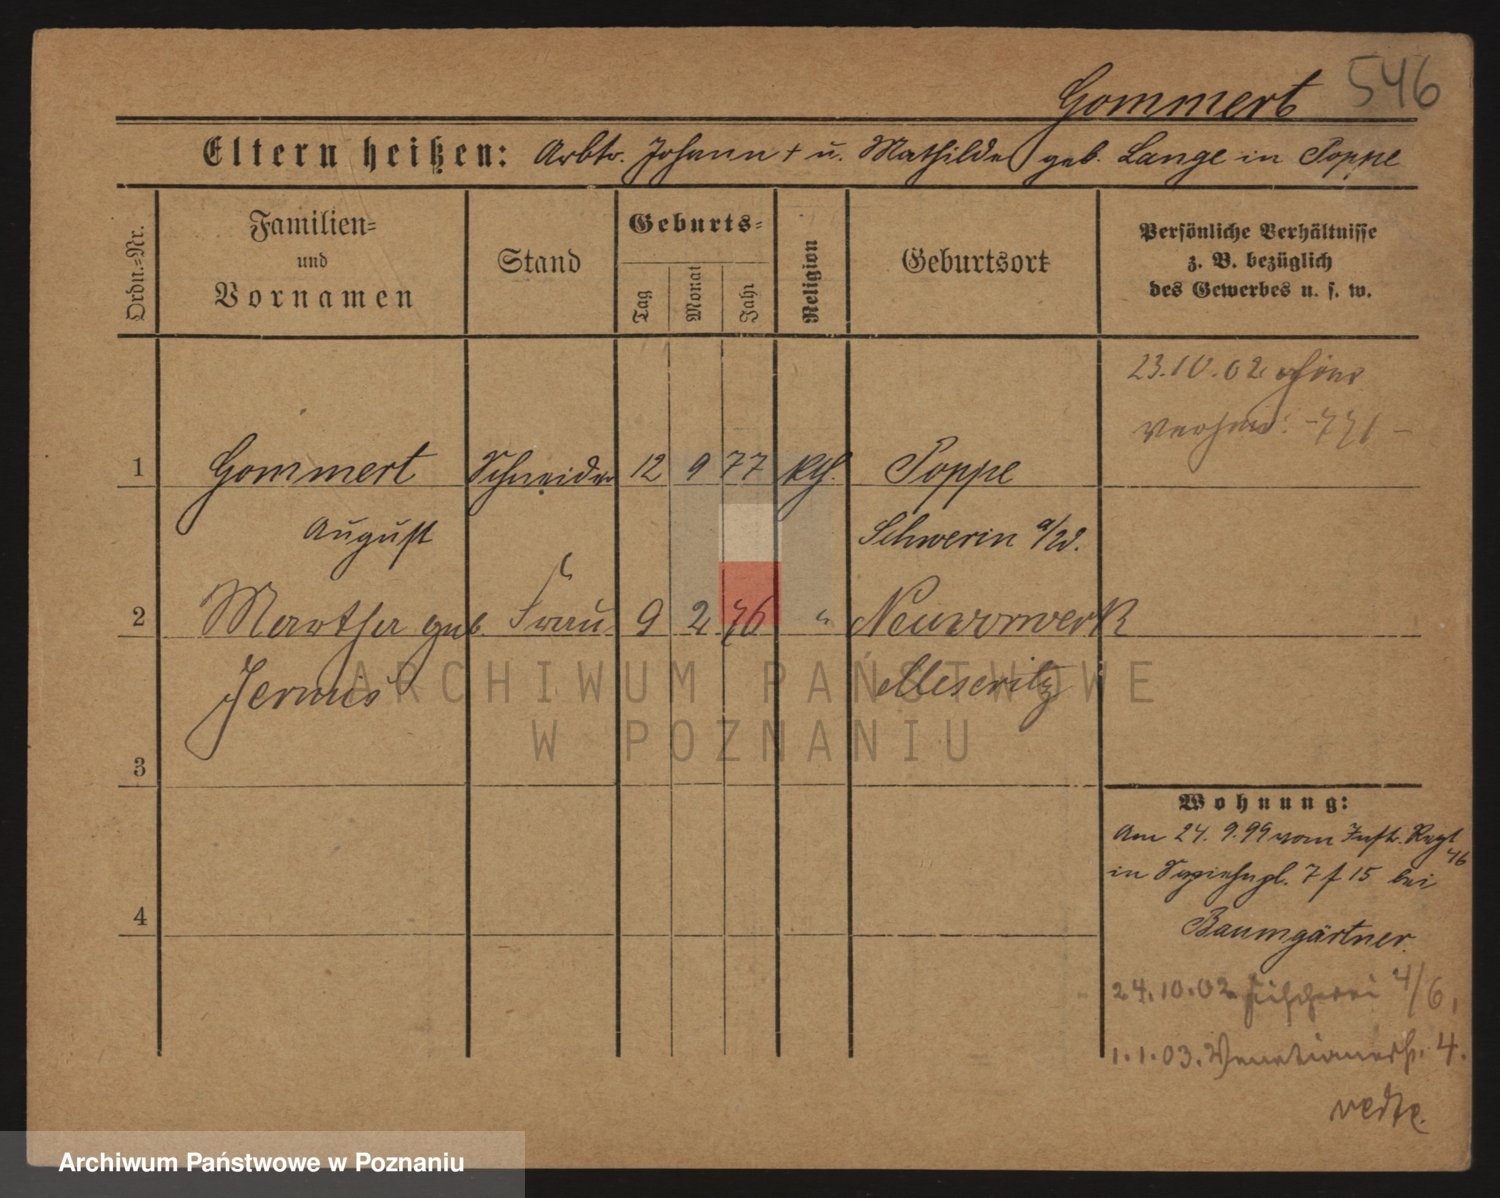 Gommert 546
Eltern heißen: Arbtr. Johann + u. Mathilde geb. Lange in Poppe
Ordn.-Nr.
Familien-
und
Vornamen
Stand
Geburts-
Tag
Monat
Jahr
Religion
Geburtsort
Persönliche Verhältnisse
z. B. bezüglich
des Gewerbes u. s. w.
23.10.02
1 Gommert Schneider 12 9 77 kth. Poppe
August Schwerin a/W.
2 Martha geb Frau 9 2 76 " Neuvorwerk
Jermis Meseritz
3
4
Wohnung:
Am 24. 9. 99 vom Inft. Regt
46
in Sapiehapl. 7 f 15 bei
Baumgärtner.
24.10.02 Fischerei 4/6.
1.1.03. Venetianerst. 4.
ARCHIWUM PAŃSTWOWE
W POZNANIU
Archiwum Państwowe w Poznaniu